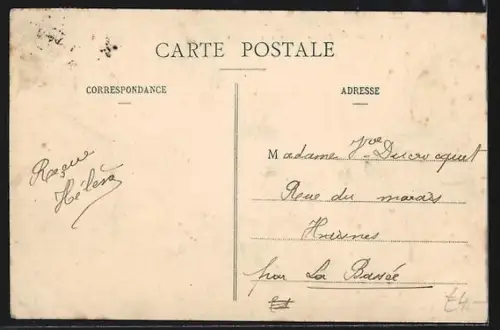 CARTE POSTALE
CORRESPONDANCE
ADRESSE
Reçue
Hélène
Madame Vve Ducrocquet
Rue du marais
Haisnes
par La Bassée
£4-